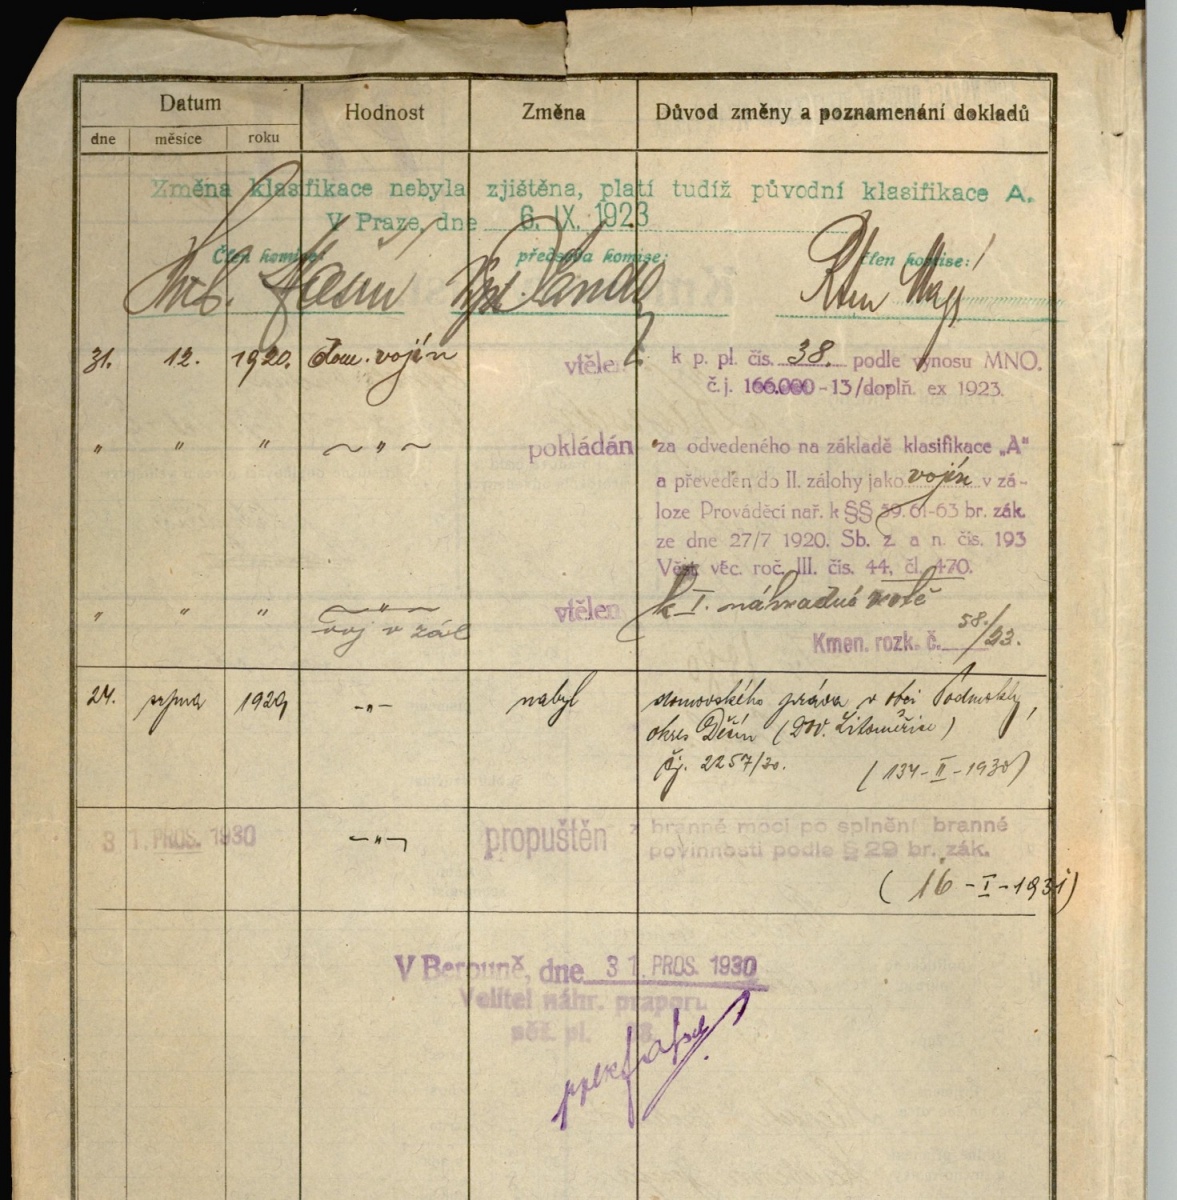 Datum Hodnost Změna Důvod změny a poznamenání dokladů
dne měsíce roku
Změna klasifikace nebyla zjištěna, platí tudíž původní klasifikace A.
V Praze, dne 6. IX. 1923
Člen komise: předseda komise: Člen komise:
31. 12. 1920. dom. vojín vtělen k p. pl. čís. 38. podle výnosu MNO.
č. j. 166.000-13/doplň. ex 1923.
" " " " pokládán za odvedeného na základě klasifikace „A"
a převeden do II. zálohy jako vojín v zá-
loze Prováděcí nař. k §§ 59. 61-63 br. zák.
ze dne 27/7 1920. Sb. z. a n. čís. 193
Věst. věc. roč. III. čis. 44, čl. 470.
" " " " vtělen k I. náhradní rotě
voj v zál
Kmen. rozk. č. 58./23.
24. října 1929 -"- nabyl domovského práva v obci Podmokly,
okres Děčín (DOV. Litoměřice)
čj. 2257/30. (134-II-1930)
31. PROS. 1930 -"- propuštěn z branné moci po splnění branné
povinnosti podle § 29 br. zák.
(16-I-1931)
V Berouně, dne 31. PROS. 1930
Velitel náhr. praporu
pěš. pl. 38.